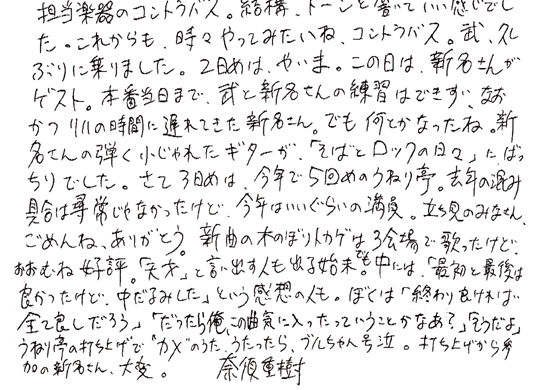 担当楽器のコントラバス。結構、ドーンと響いていい感じでし
た。これからも、時々やってみたいね、コントラバス。武、久し
ぶりに乗りました。2日めは、やいま。この日は、新名さんが
ゲスト。本番当日まで、武と新名さんの練習はできず、なお
かつリハの時間に遅れてきた新名さん。でも何とかなったね。新
名さんの弾く小じゃれたギターが、「そばとロックの日々」にばっ
ちりでした。さて3日めは、今年で5回めのうねり亭。去年の混み
具合は尋常じゃなかったけど、今年はいいぐらいの満員。立ち見のみなさん、
ごめんね、ありがとう。新曲の木のぼりトカゲは3会場で歌ったけど、
おおむね好評。「天才」と言い出す人も出る始末。でも中には、「最初と最後は
良かったけど、中だるみした」という感想の人も。ぼくは「終わり良ければ
全て良しだろう」「だったら俺、この曲気に入ったっていうことかなあ?」「そうだよ」
うねり亭の打ち上げで"カメ"のうた、うたったら、ブルちゃん号泣。打ち上げから参
加の新名さん、大変。 奈須重樹